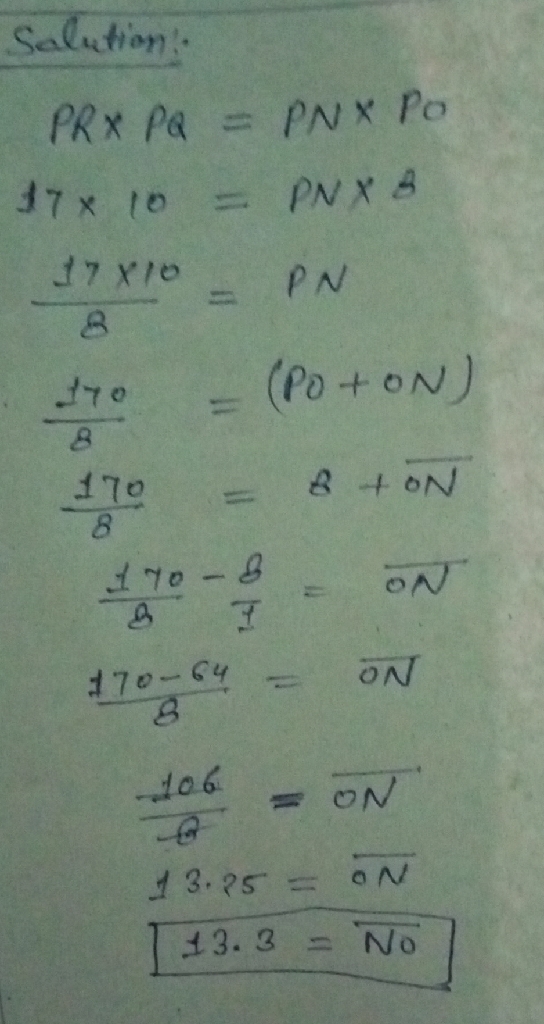 Salution:.
PR X PQ = PN X PO
17 x 10 = PN X 8
17 X 10 / 8 = PN
170 / 8 = (PO + ON)
170 / 8 = 8 + O̅N̅
170 / 8 - 8 / 1 = O̅N̅
170-64 / 8 = O̅N̅
106 / 8 = O̅N̅
13.25 = O̅N̅
13.3 = N̅O̅